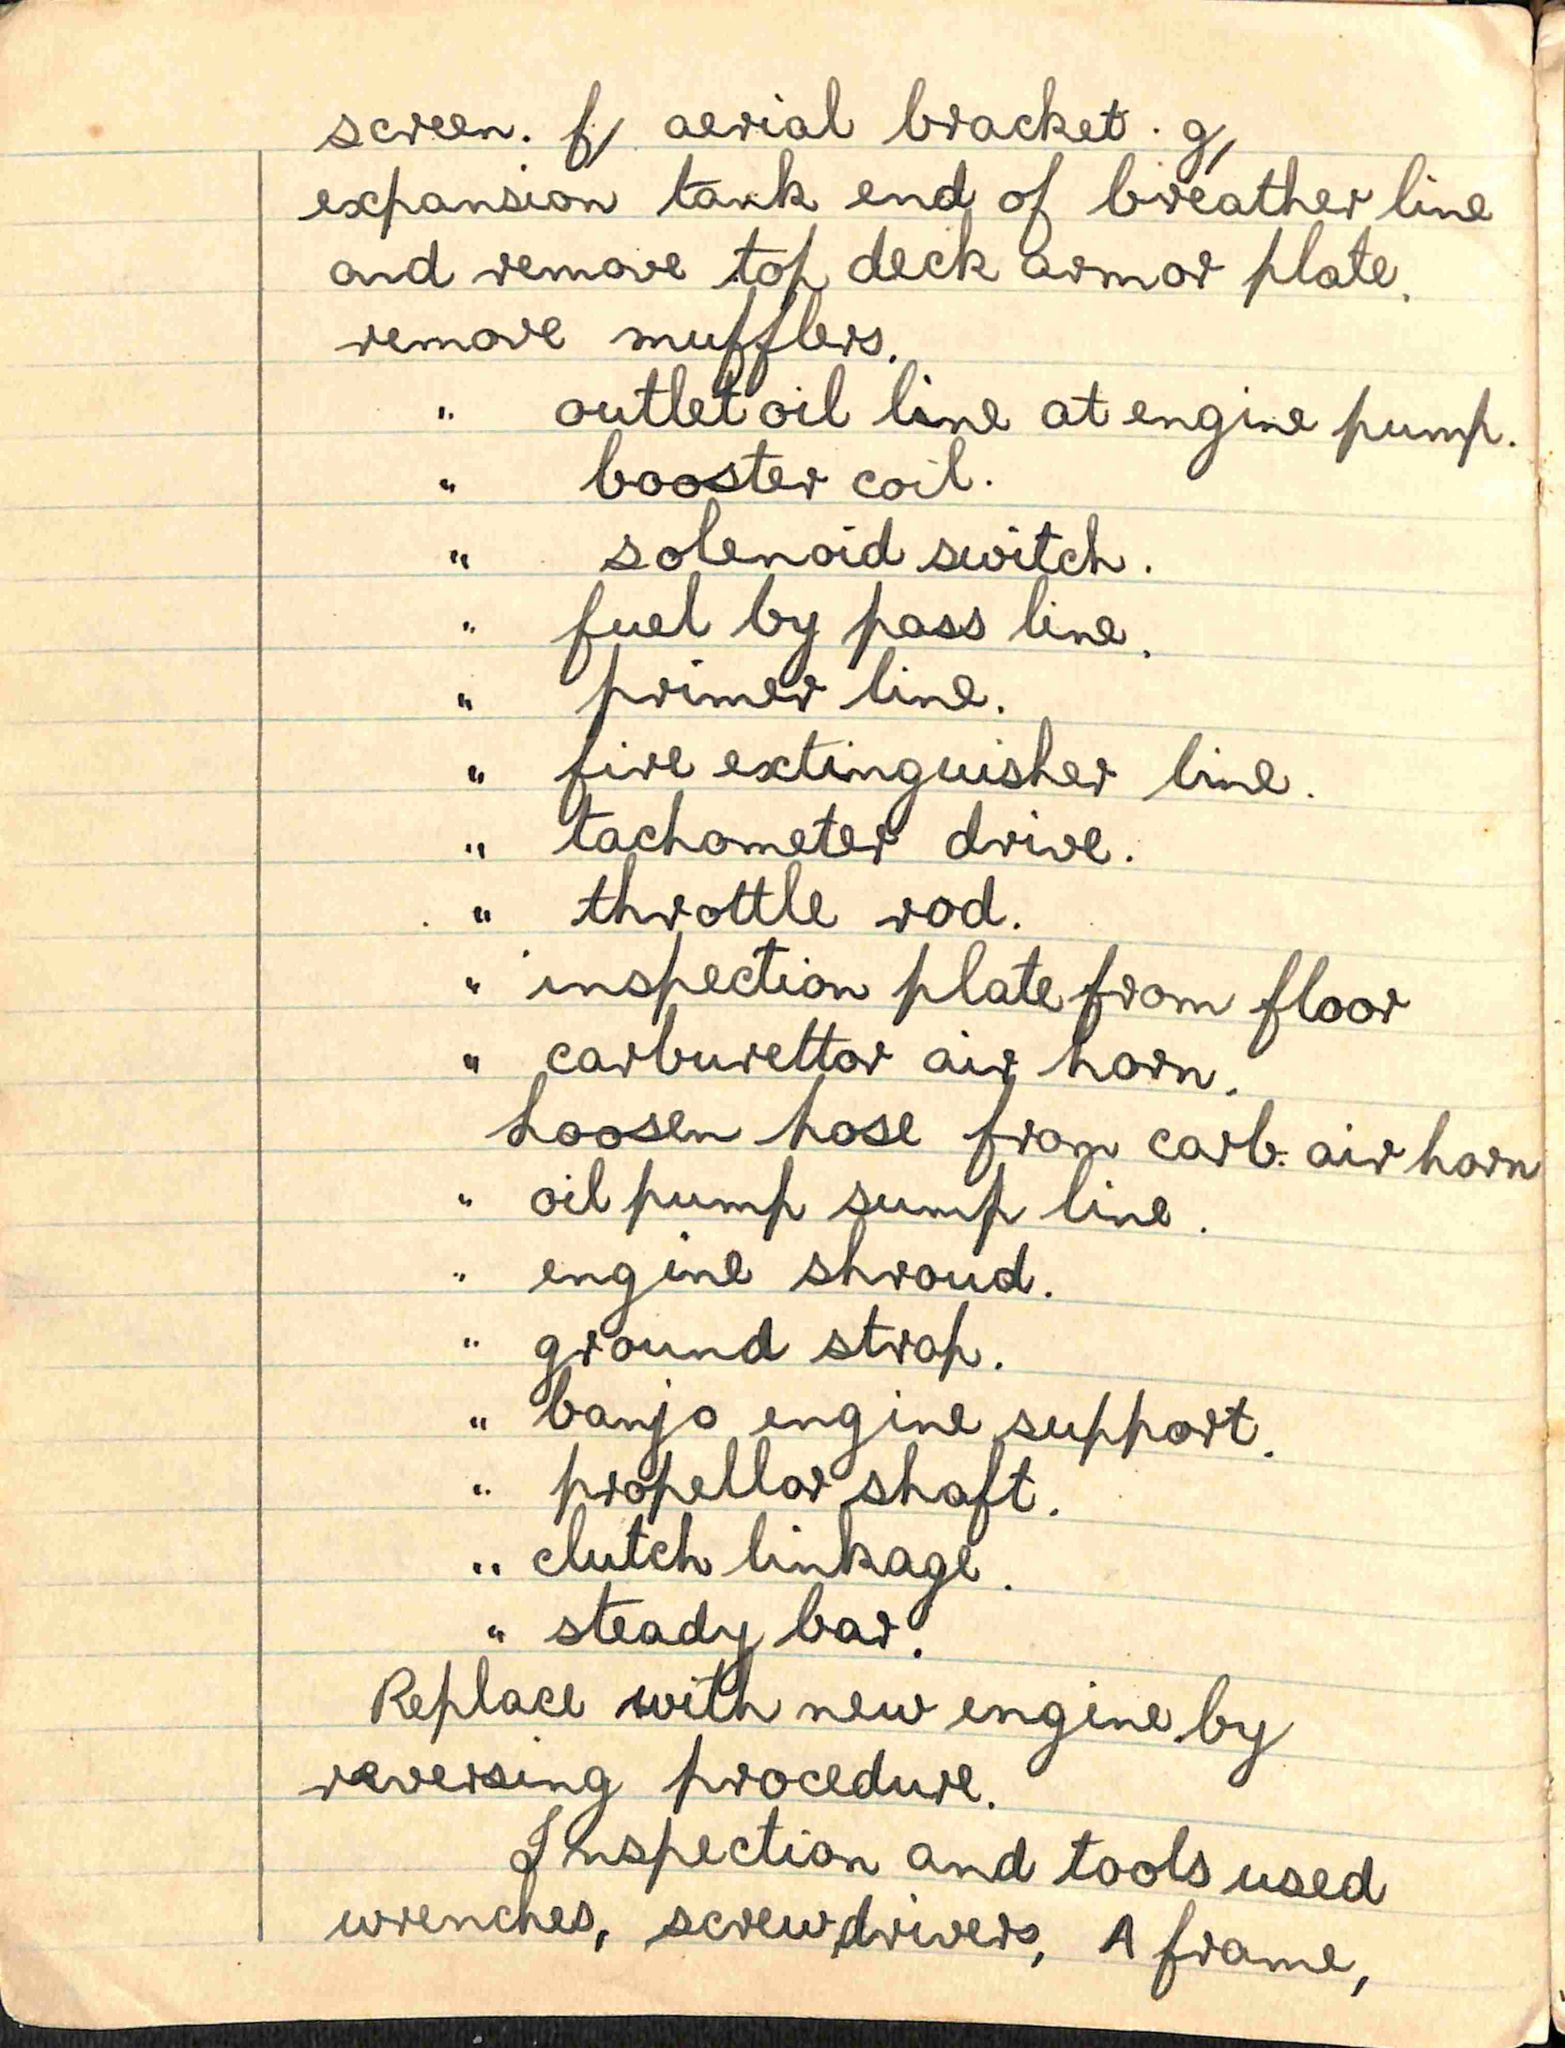 screen. f/ aerial bracket. g/
expansion tank end of breather line
and remove top deck armor plate.
remove mufflers.
" outlet oil line at engine pump.
" booster coil.
" solenoid switch.
" fuel by pass line.
" primer line.
" fire extinguisher line.
" tachometer drive.
" throttle rod.
" inspection plate from floor
" carburettor air horn.
Loosen hose from carb. air horn
" oil pump sump line.
" engine shroud.
" ground strap.
" banjo engine support.
" propellor shaft.
" clutch linkage.
" steady bar.
Replace with new engine by
reversing procedure.
Inspection and tools used
wrenches, screwdrivers, A frame,